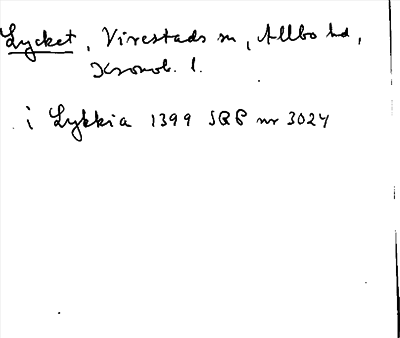 Lycket, Virestads sn, Allbo hd,
Kronob. l.
i Lykkia 1399 SRP nr 3024